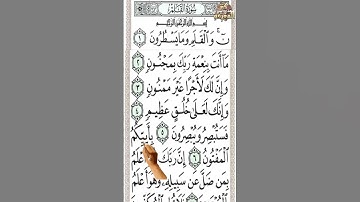 سُورَةُ القَلَمِ
بِسْمِ اللَّهِ الرَّحْمَٰنِ الرَّحِيمِ
نٓ ۚ وَالْقَلَمِ وَمَا يَسْطُرُونَ ١
مَا أَنتَ بِنِعْمَةِ رَبِّكَ بِمَجْنُونٍ ٢
وَإِنَّ لَكَ لَأَجْرًا غَيْرَ مَمْنُونٍ ٣
وَإِنَّكَ لَعَلَىٰ خُلُقٍ عَظِيمٍ ٤
فَسَتُبْصِرُ وَيُبْصِرُونَ ٥ بِأَييِّكُمُ
الْمَفْتُونُ ٦ إِنَّ رَبَّكَ أَعْلَمُ
بِمَن ضَلَّ عَن سَبِيلِهِ وَهُوَ أَعْلَمُ